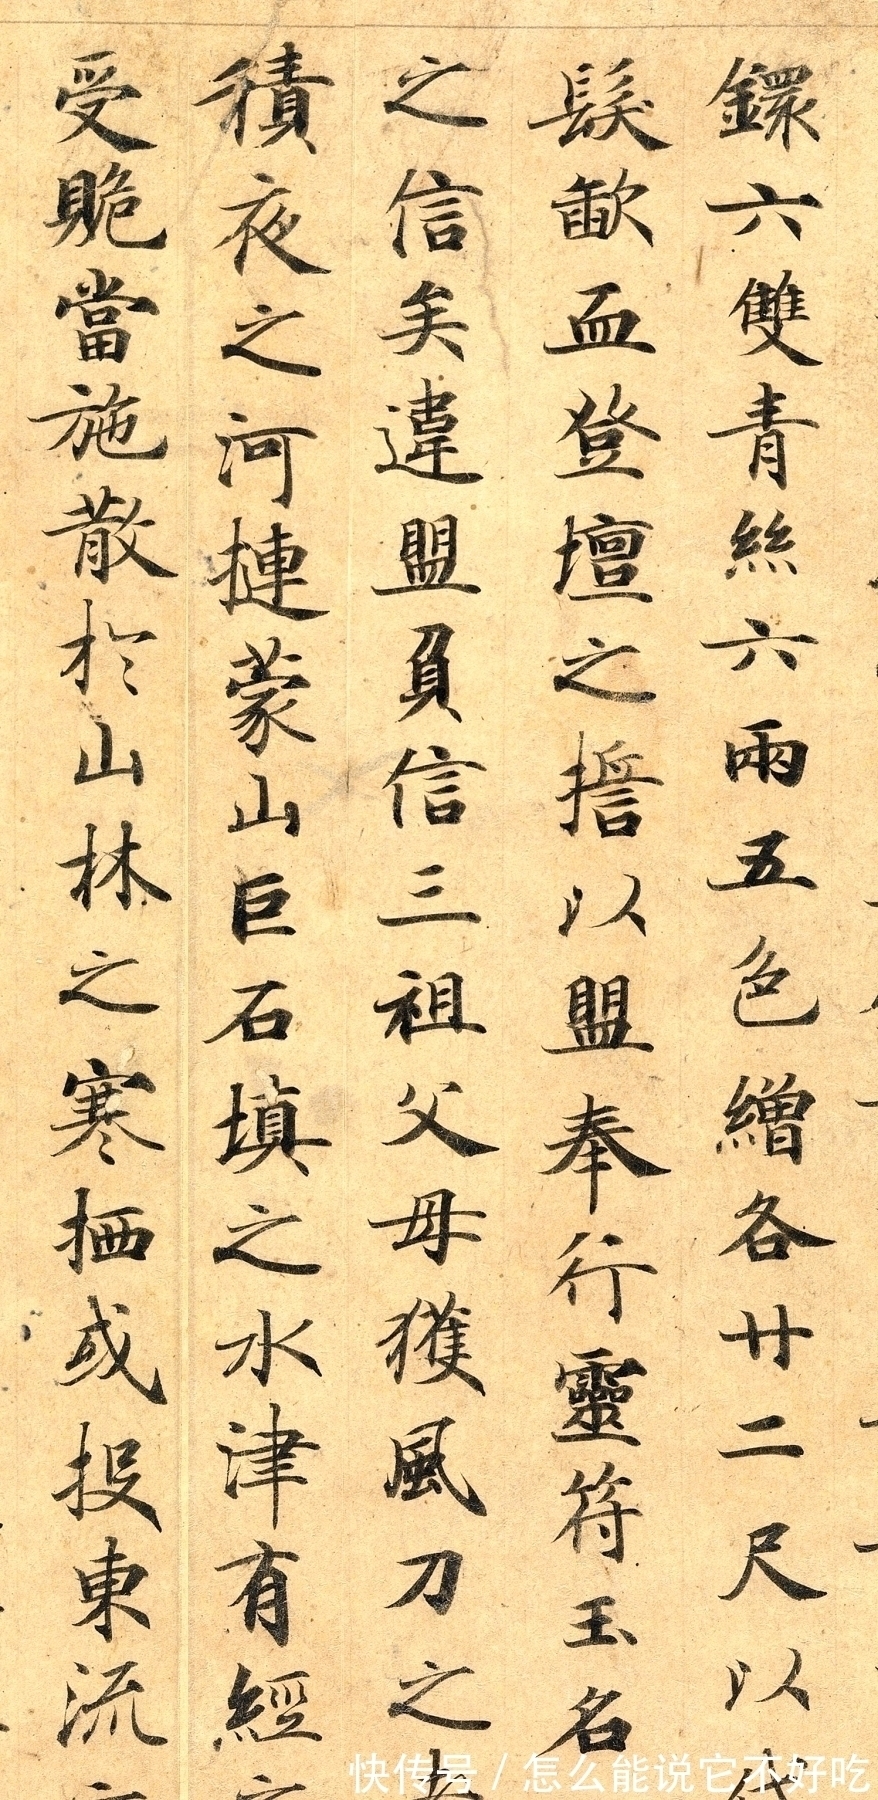 鐶六雙青絲六兩五色繒各廿二尺以
髮歃血登壇之誓以盟奉行靈符玉名
之信矣違盟負信三祖父母獲風刀之
積夜之河摙蒙山巨石填之水津有經
受賄當施散於山林之寒栖或投東流
快传号 / 怎么能说它不好吃